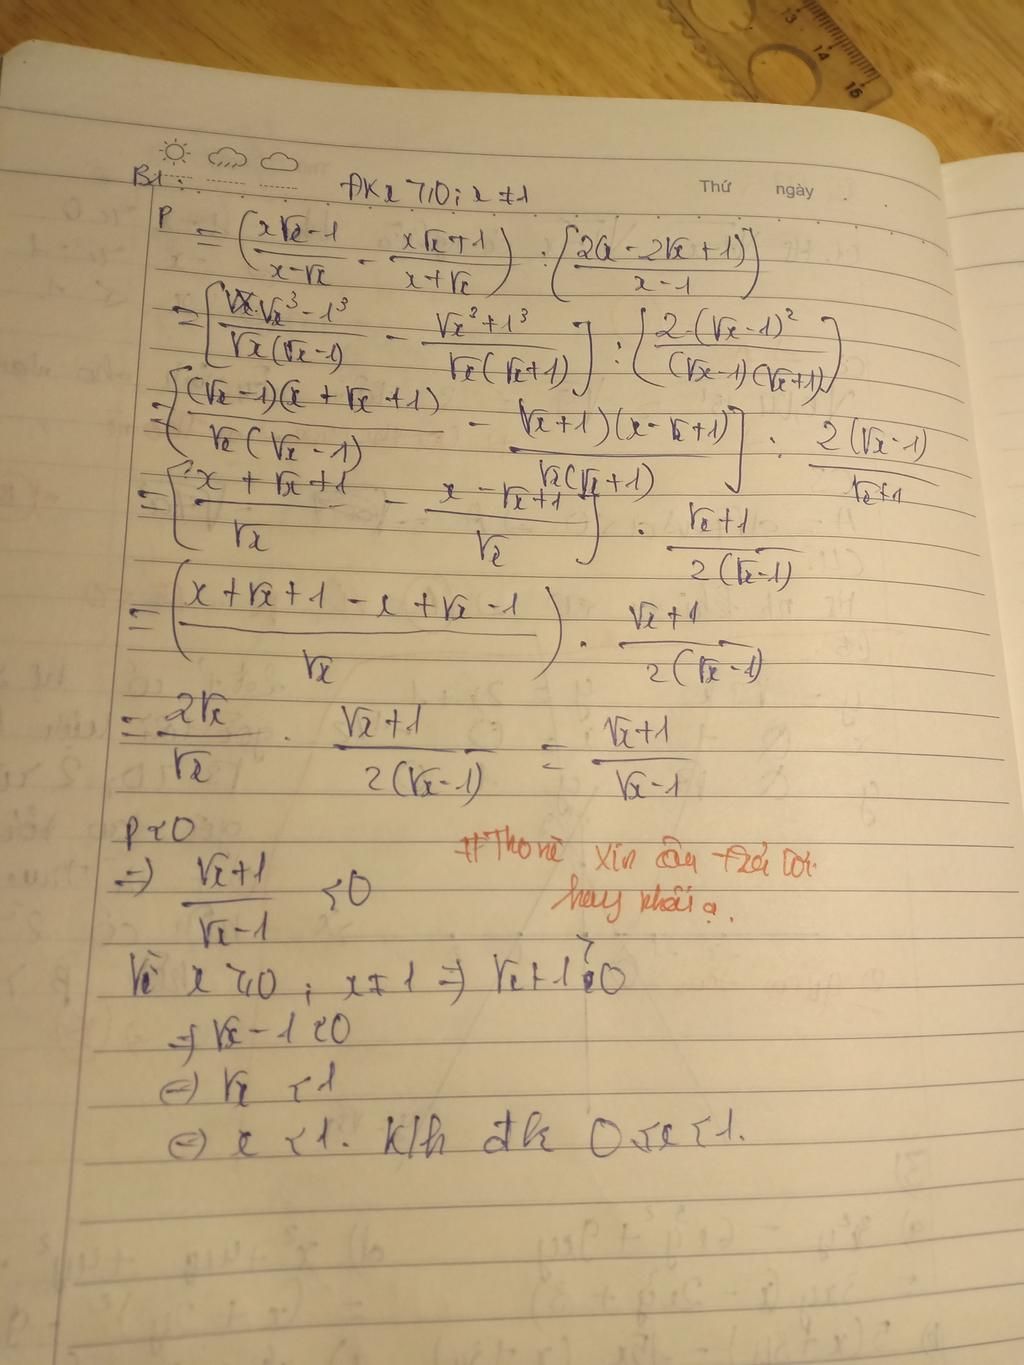 13 14 15
Thứ ngày
B1: ĐK x ⩾ 0; x ≠ 1
P = (x√x-1 / x-√x - x√x+1 / x+√x) : [2(x-2√x+1) / x-1]
= [√x³-1³ / √x(√x-1) - √x³+1³ / √x(√x+1)] : [2.(√x-1)² / (√x-1)(√x+1)]
= [(√x-1)(x+√x+1) / √x(√x-1) - (√x+1)(x-√x+1) / √x(√x+1)] : 2(√x-1) / √x+1
= [x+√x+1 / √x - x-√x+1 / √x] . √x+1 / 2(√x-1)
= (x+√x+1-x+√x-1 / √x) . √x+1 / 2(√x-1)
= 2√x / √x . √x+1 / 2(√x-1) = √x+1 / √x-1
P<0
#Thonè xin câu trả lời
hay nhất ạ.
=) √x+1 / √x-1 <0
Vì x ⩾ 0; x ≠ 1 =) √x+1>0
=) √x-1<0
(=) √x <1
(=) x <1. K/h đk 0<x<1.